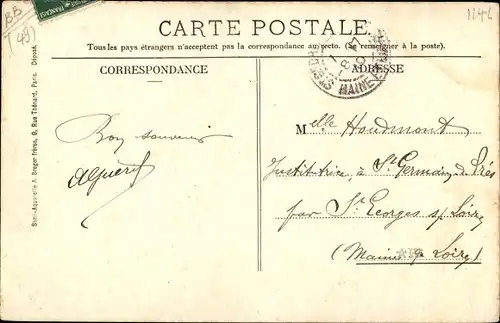 BB
(49)
1242
CARTE POSTALE
Tous les pays étrangers n'acceptent pas la correspondance au recto. (Se renseigner à la poste).
CORRESPONDANCE
ADRESSE
MAINE
Bon souvenir
Melle Houdmont
Institutrice, à St Germain-d. Prés
par St Georges s/ Loire
(Maine & Loire)
Simili-Aquarelle A. Breger frères, 9, Rue Thénard, Paris. Déposé.